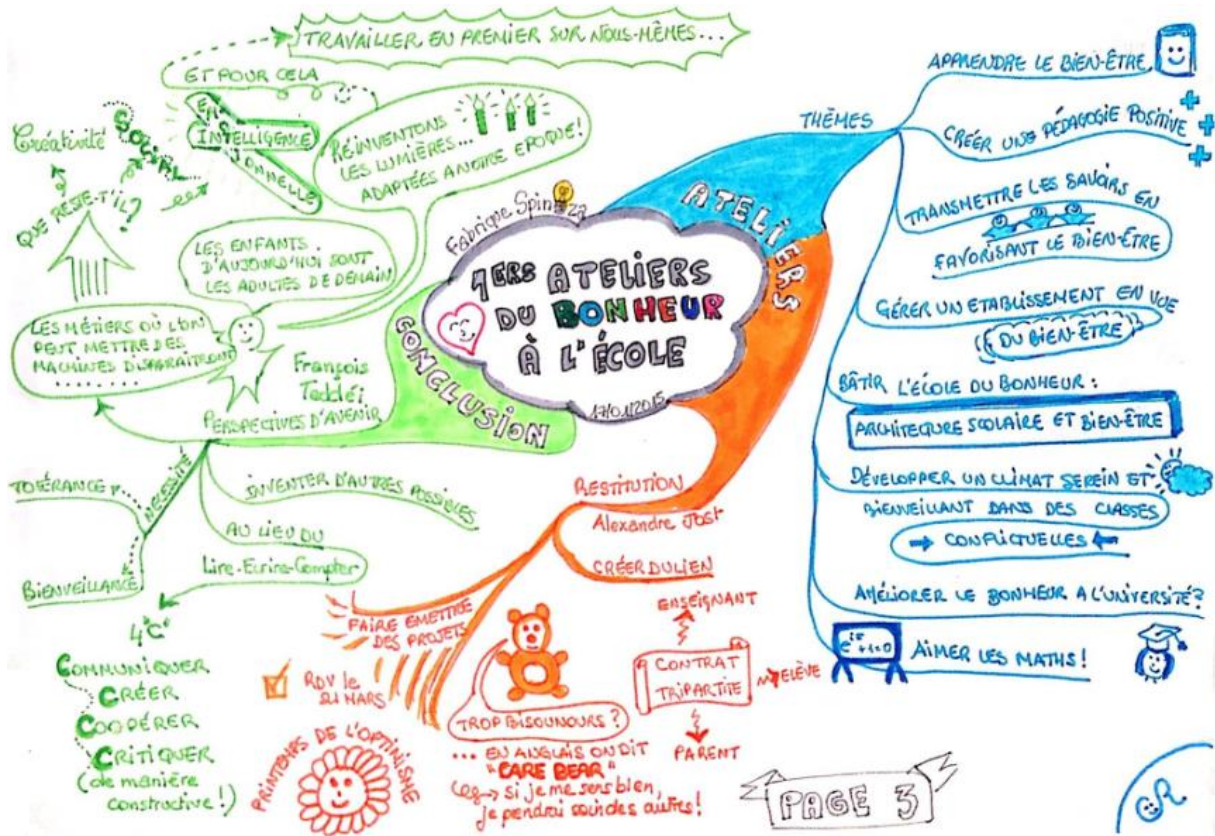 Fabrique Spinoza
1ERS ATELIERS
DU BONHEUR
À L'ÉCOLE
17/01/2015
ATELIERS
THÈMES
APPRENDRE LE BIEN-ÊTRE
CRÉER UNE PÉDAGOGIE POSITIVE
TRANSMETTRE LES SAVOIRS EN
FAVORISANT LE BIEN-ÊTRE
GÉRER UN ETABLISSEMENT EN VUE
DU BIEN-ÊTRE
BÂTIR L'ÉCOLE DU BONHEUR :
ARCHITECTURE SCOLAIRE ET BIEN-ÊTRE
DÉVELOPPER UN CLIMAT SEREIN ET
BIENVEILLANT DANS DES CLASSES
CONFLICTUELLES
AMÉLIORER LE BONHEUR A L'UNIVERSITÉ?
e^iπ +1=0
AIMER LES MATHS !
RESTITUTION
Alexandre Jost
CRÉER DU LIEN
ENSEIGNANT
CONTRAT
TRIPARTITE
ELÈVE
PARENT
TROP BISOUNOURS ?
... EN ANGLAIS ON DIT
"CARE BEAR"
si je me sens bien,
je pendrai soin des autres !
FAIRE EMETTRE
DES PROJETS
RDV le
21 MARS
PRINTEMPS DE L'OPTIMISME
CONCLUSION
François
Taddéi
PERSPECTIVES D'AVENIR
LES ENFANTS
D'AUJOURD'HUI SONT
LES ADULTES DE DEMAIN
RÉINVENTONS
LES LUMIÈRES...
ADAPTÉES A NOTRE EPOQUE!
ET POUR CELA
TRAVAILLER EN PREMIER SUR NOUS-MÊMES...
LES MÉTIERS OÙ L'ON
PEUT METTRE DES
MACHINES DISPARAITRONT
.........
QUE RESTE-T'IL?
Créativité
SOCIAL
INTELLIGENCE
NÉCESSITÉ
TOLÉRANCE
BIENVEILLANCE
INVENTER D'AUTRES POSSIBLES
AU LIEU DU
Lire-Ecrire-Compter
4"C"
COMMUNIQUER
CRÉER
COOPÉRER
CRITIQUER
(de manière
constructive !)
PAGE 3